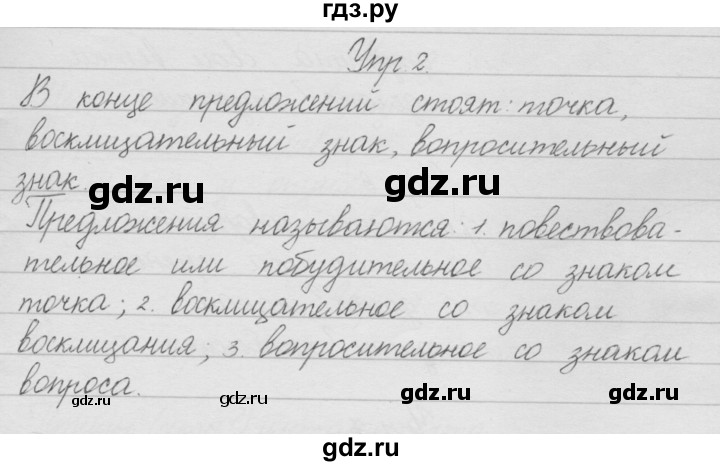 гдз.ру
Упр 2.
В конце предложений стоят: точка,
восклицательный знак, вопросительный
знак.
gdz.ru gdz.ru
Предложения называются: 1. повествова-
тельное или побудительное со знаком
точка; 2. восклицательное со знаком
восклицания; 3. вопросительное со знаком
вопроса.
gdz.ru gdz.ru gdz.ru gdz.ru
gdz.ru